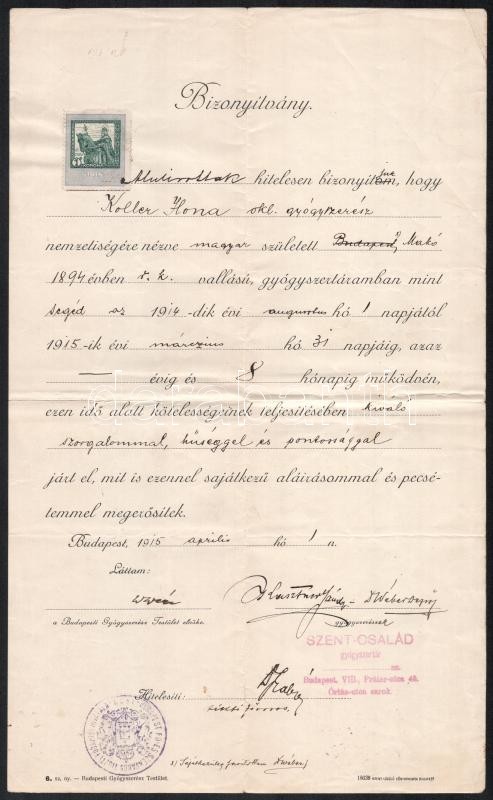 Bizonyitvány.
1915
Alulírottak hitelesen bizonyitjuk, hogy
Koller Ilona okl. gyógyszerész
nemzetiségére nézve magyar született Budapest Makó
1894 évben r. k. vallású, gyógyszertáramban mint
segéd az 1914-dik évi augusztus hó 1 napjától
1915-ik évi márczius hó 31 napjáig, azaz
— évig és 8 hónapig működvén,
ezen idő alatt kötelességeinek teljesitésében kiváló
szorgalommal, hűséggel és pontossággal
járt el, mit is ezennel sajátkezű aláirásommal és pecsé-
temmel megerősitek.
Budapest, 1915 április hó 1 n.
Láttam:
a Budapesti Gyógyszerész Testület elnöke.
gyógyszerész
SZENT-CSALÁD
gyógyszertár
Budapest, VIII., Práter-utca
sarok.
Hitelesiti:
tiszti főorvos.
6. sz. ny. — Budapesti Gyógyszerész Testület.